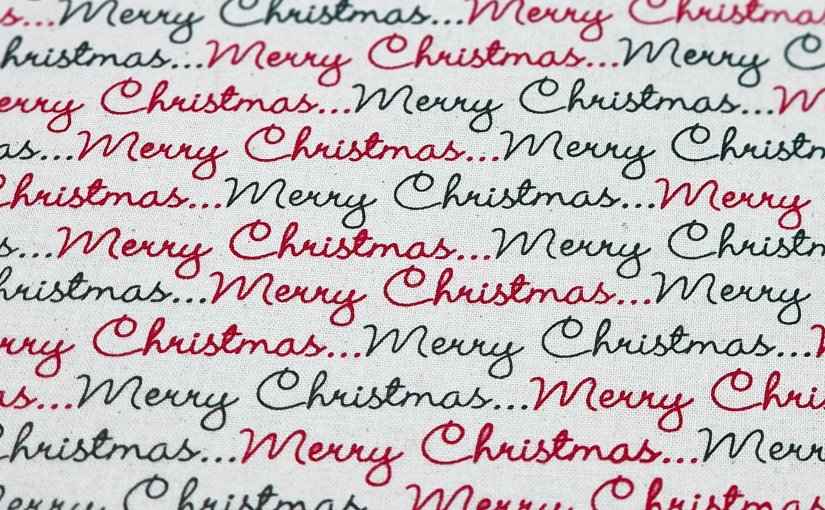 s...Merry Christmas...Merry Christmas
hristmas...Merry Christmas...Merry C
erry Christmas...Merry Christmas...M
as...Merry Christmas...Merry Christm
Christmas...Merry Christmas...Merry
s...Merry Christmas...Merry Christm
hristmas...Merry Christmas...Merry
rry Christmas...Merry Christmas...
as...Merry Christmas...Merry Chris
Christmas...Merry Christmas...Merr
Merry Christmas...Merry Christmas